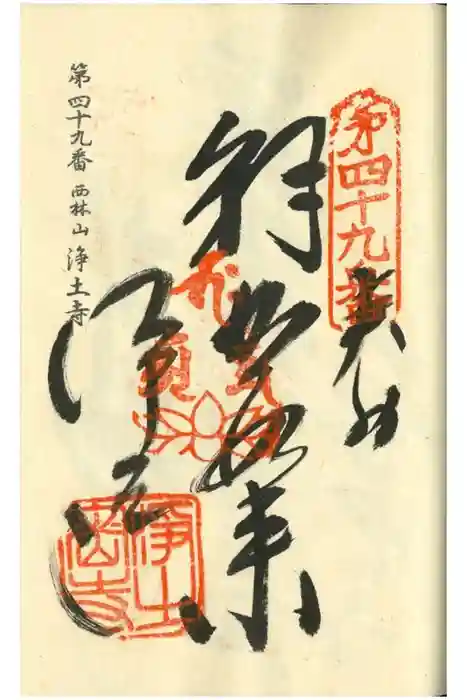 第四十九番
奉納
釈迦如来
浄土寺
浄土寺
第四十九番 西林山 浄土寺